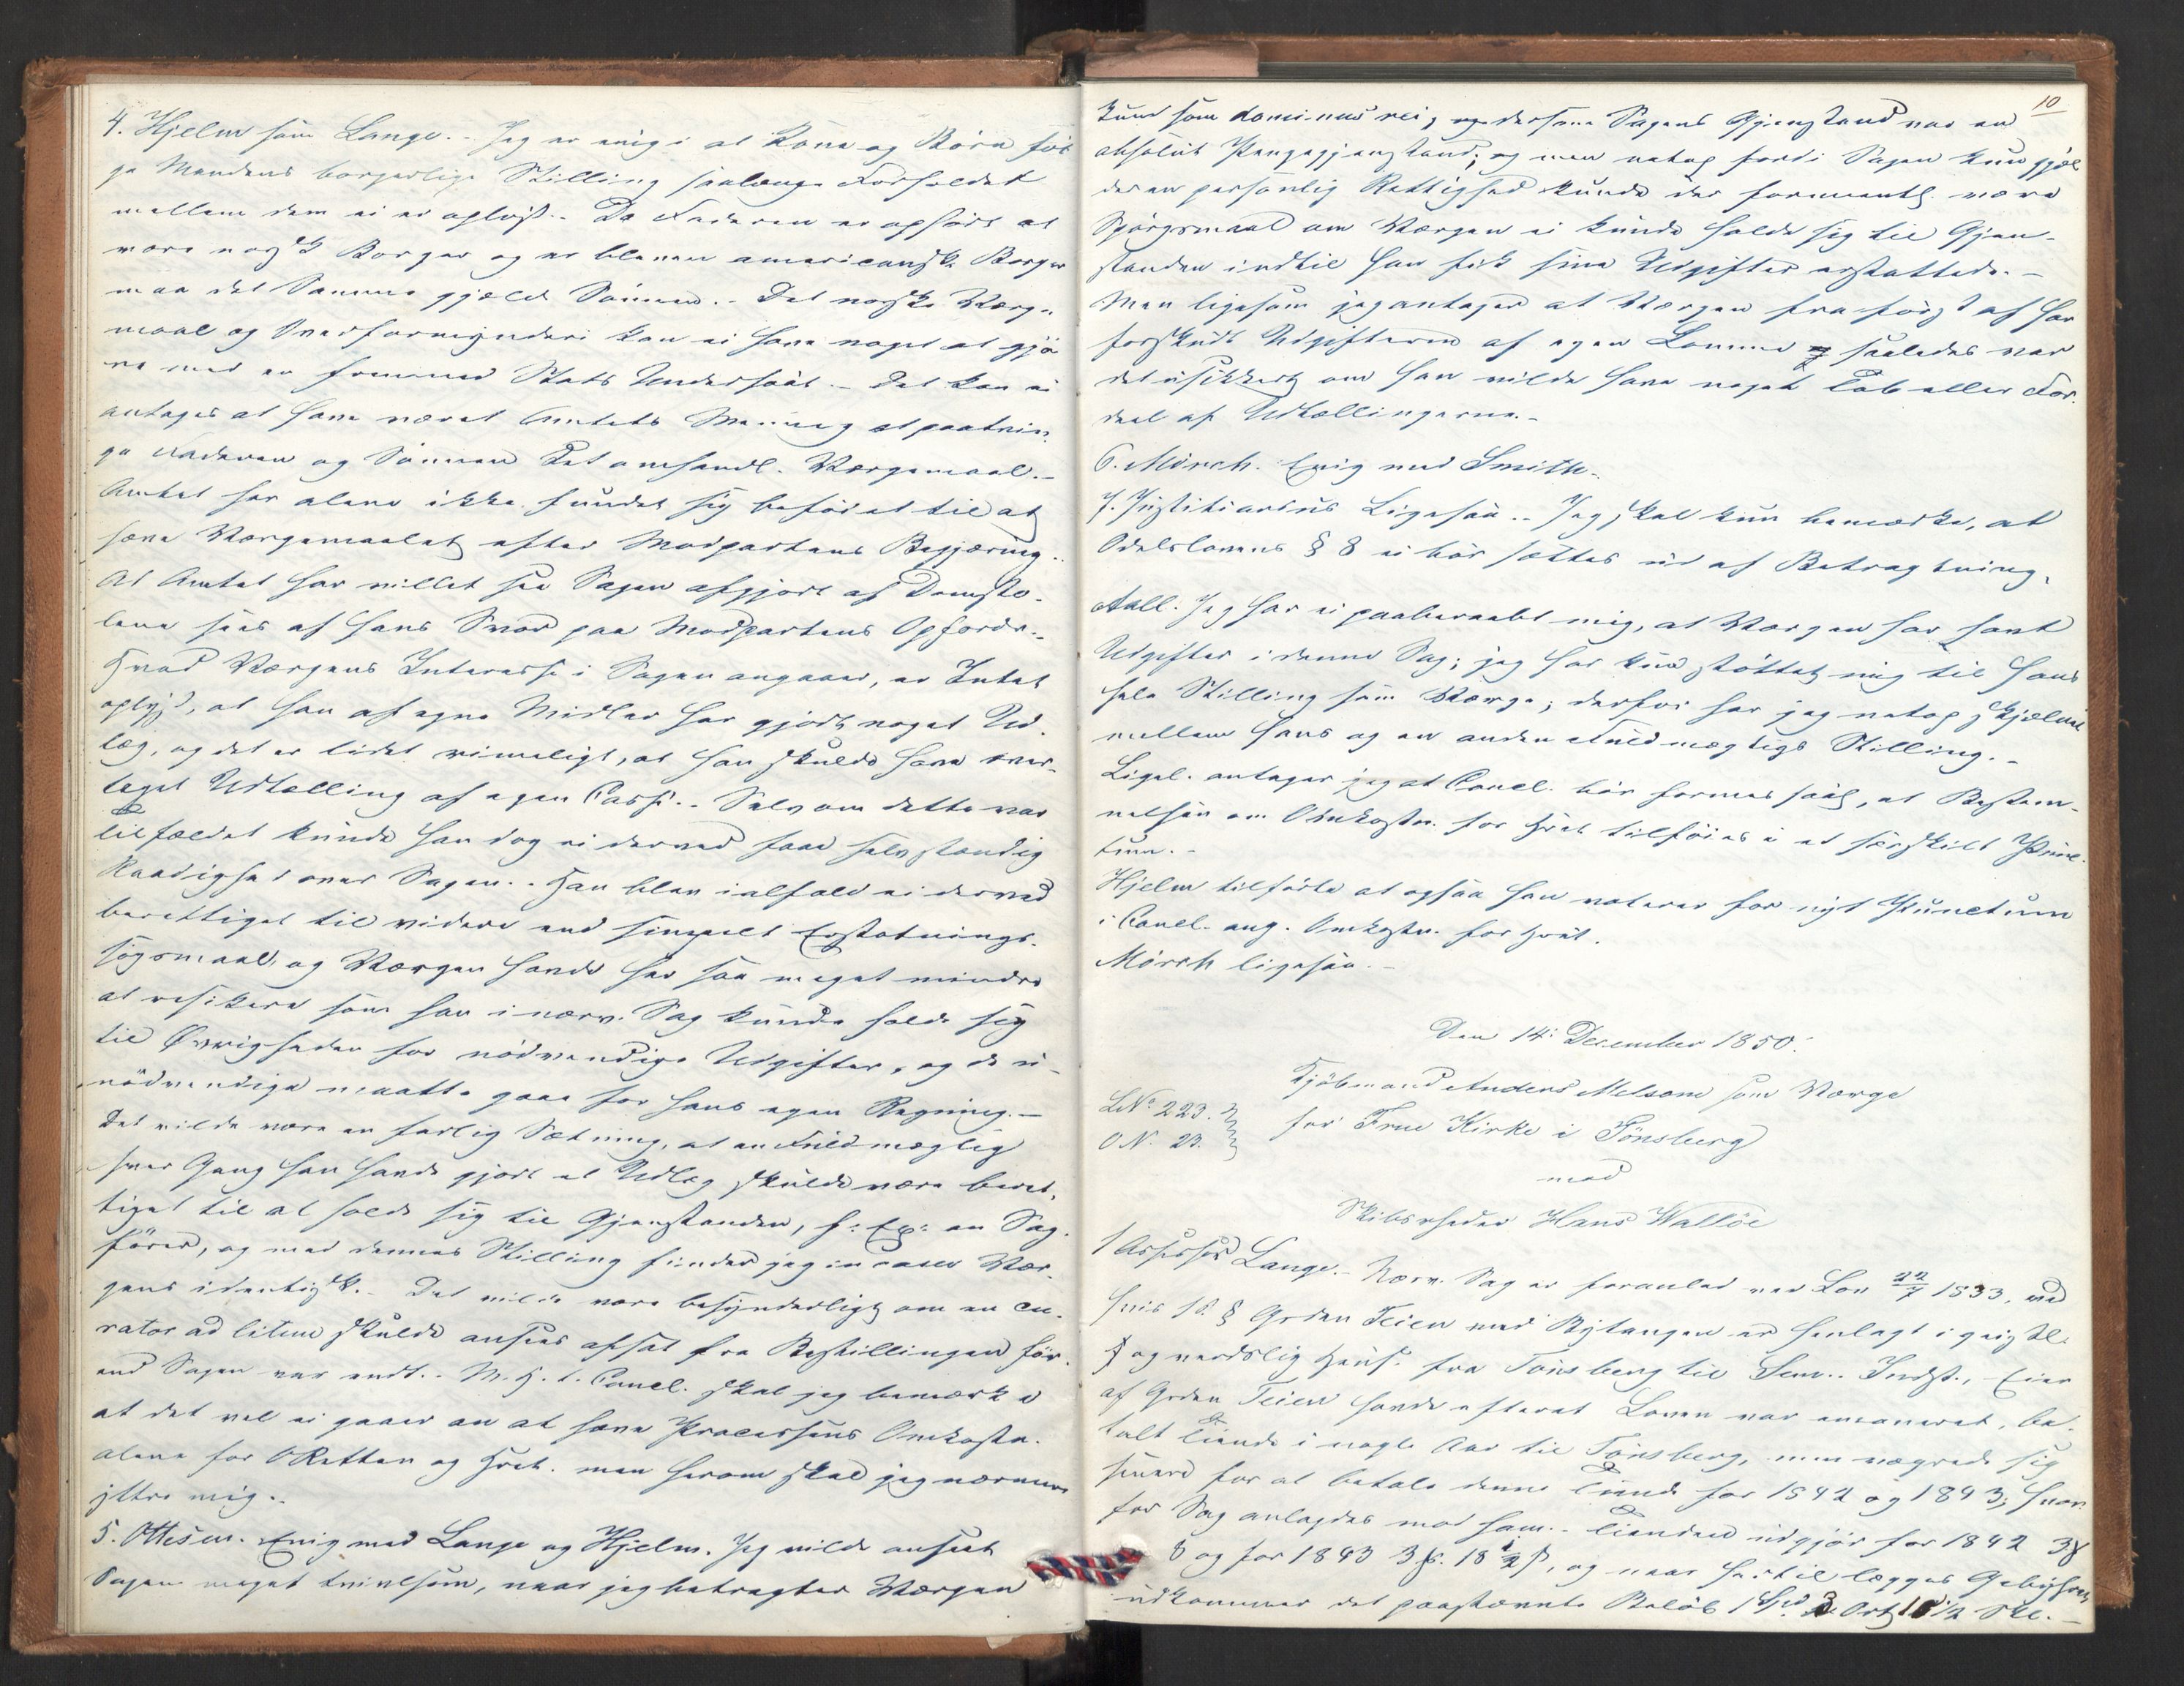 4. Hjelm som Lange.- Jeg er enig i at Kone og Börn föl
ge Mandens borgerlige Stilling saalænge Forholdet
mellem dem ei er oplöst.- Da Faderen er ophört at
være norsk Borger og er bleven americansk Borger
maa det Samme gjælde Sönnen.- Det norske Værge-
maal og Overformynderi kan ei have noget at gjö
re med en fremmed Stats Undersaat.- Det kan ei
antages at have været Amtets Mening at paatvin
ge Faderen og Sönnen Det omhandl. Værgemaal.-
Amtet har alene ikke fundet sig beföiet til at
hæve Værgemaalet efter Modpartens Begjæring.-
At Amtet har villet see Sagen afgjort af Domsto-
lene sees af hans Svar paa Modpartens Opfordr.-
Hvad Værgens Interesse i Sagen angaaer, er Intet
oplyst, at han af egne Midler har gjort noget Ud-
læg, og det er lidet rimeligt, at han skulde have over-
taget Udtælling af egen Casse.- Selv om dette var
Tilfældet kunde han dog ei derved faae selvstændig
Raadighed over Sagen.- Han blev ialfald ei derved
berettiget til videre end simpelt Erstatnings-
sögsmaal, og Værgen havde her saa meget mindre
at resikere som han i nærv. Sag kunde holde sig
til Øvrigheden for nödvendige Udgifter, og de u-
nödvendige maatte gaae for hans egen Regning.-
Det vilde være en farlig Sætning, at en Fuldmægtig
hver Gang han havde gjort et Udlæg skulde være beret-
tiget til at holde sig til Gjenstanden, f: Ex: en Sag-
förer, og med dennes Stilling finder jeg in casu Vær-
gens identisk.- Det vilde være besynderligt om en cu-
rator ad litem skulde ansees afsat fra Bestillingen för-
end Sagen var endt.- M. H. t. Concl. skal jeg bemærke
at det vel ei gaaer an at hæve Processens Omkostn.
alene for ORetten og Hret. men herom skal jeg nærmere
yttre mig.-
5. Ottesen. Enig med Lange og Hjelm. Jeg vilde anseet
Sagen meget tvivlsom, naar jeg betragter Værgen
10
kun som dominus rei; dersom Sagens Gjenstand var en
absolut Pengegjenstand; og men netop fordi Sagen kun gjæl
der en personlig Rettighed kunde der formeentl. være
Spörgsmaal om Værgen ei kunde holde sig til Gjen-
standen indtil han fik sine Udgifter erstattede.-
Men ligesom jeg antager at Værgen fra först af har
forskudt Udgifterne af egen Lomme saaledes var
det usikkert om han vilde have noget Tab eller For-
deel af Udtællingerne.-
6. Mörch. Enig med Smith.
7. Justitiarius Ligesaa.- Jeg skal kun bemærke, at
Odelslovens § 8 ei bör sættes ud af Betragtning.
Aall. Jeg har ei paaberaabt mig, at Værgen har havt
Udgifter i denne Sag; jeg har kun stöttet mig til hans
hele Stilling som Værge; derfor har jeg netop skjælnet
mellem hans og en anden Fuldmægtigs Stilling.-
Ligel. antager jeg at Concl. bör formes saal, at Bestem-
melsen om Omkostn. for Hret tilföies i et særskilt Punc-
tum.-
Hjelm tilförte at ogsaa han voterer for nyt Punctum
i Concl. ang. Omkostn. for Hret.
Mörch ligesaa.-
Den 14: December 1850.
LNo 223.
O N. 23.
Kjöbmand Anders Melsom som Værge
for Frue Kirke i Tönsberg
mod
Skibsrheder Hans Wallöe
1 Assessor Lange.- Nærv. Sag er foranled. ved Lov 22/7 1833, ved
hvis 10. § Grden Teien med Bytangen er henlagt i geistl.
og verdslig Hens. fra Tönsberg til Sem.- Indst., Eier
af Grden Teien havde efterat Loven var emaneret, be-
talt Tiende i nogle Aar til Tönsberg, men vægrede sig
senere for at betale denne Tiende for 1842 og 1843; hvor
for Sag anlagdes mod ham.- Tienden udgjör for 1842 3
8 og for 1843 3 . 18 1/2 ß, og naar hertil lægges Gebyhret,
udkommer det paastævnte Belöb 1 Spd 3 Ort 16 1/2 Skl.-